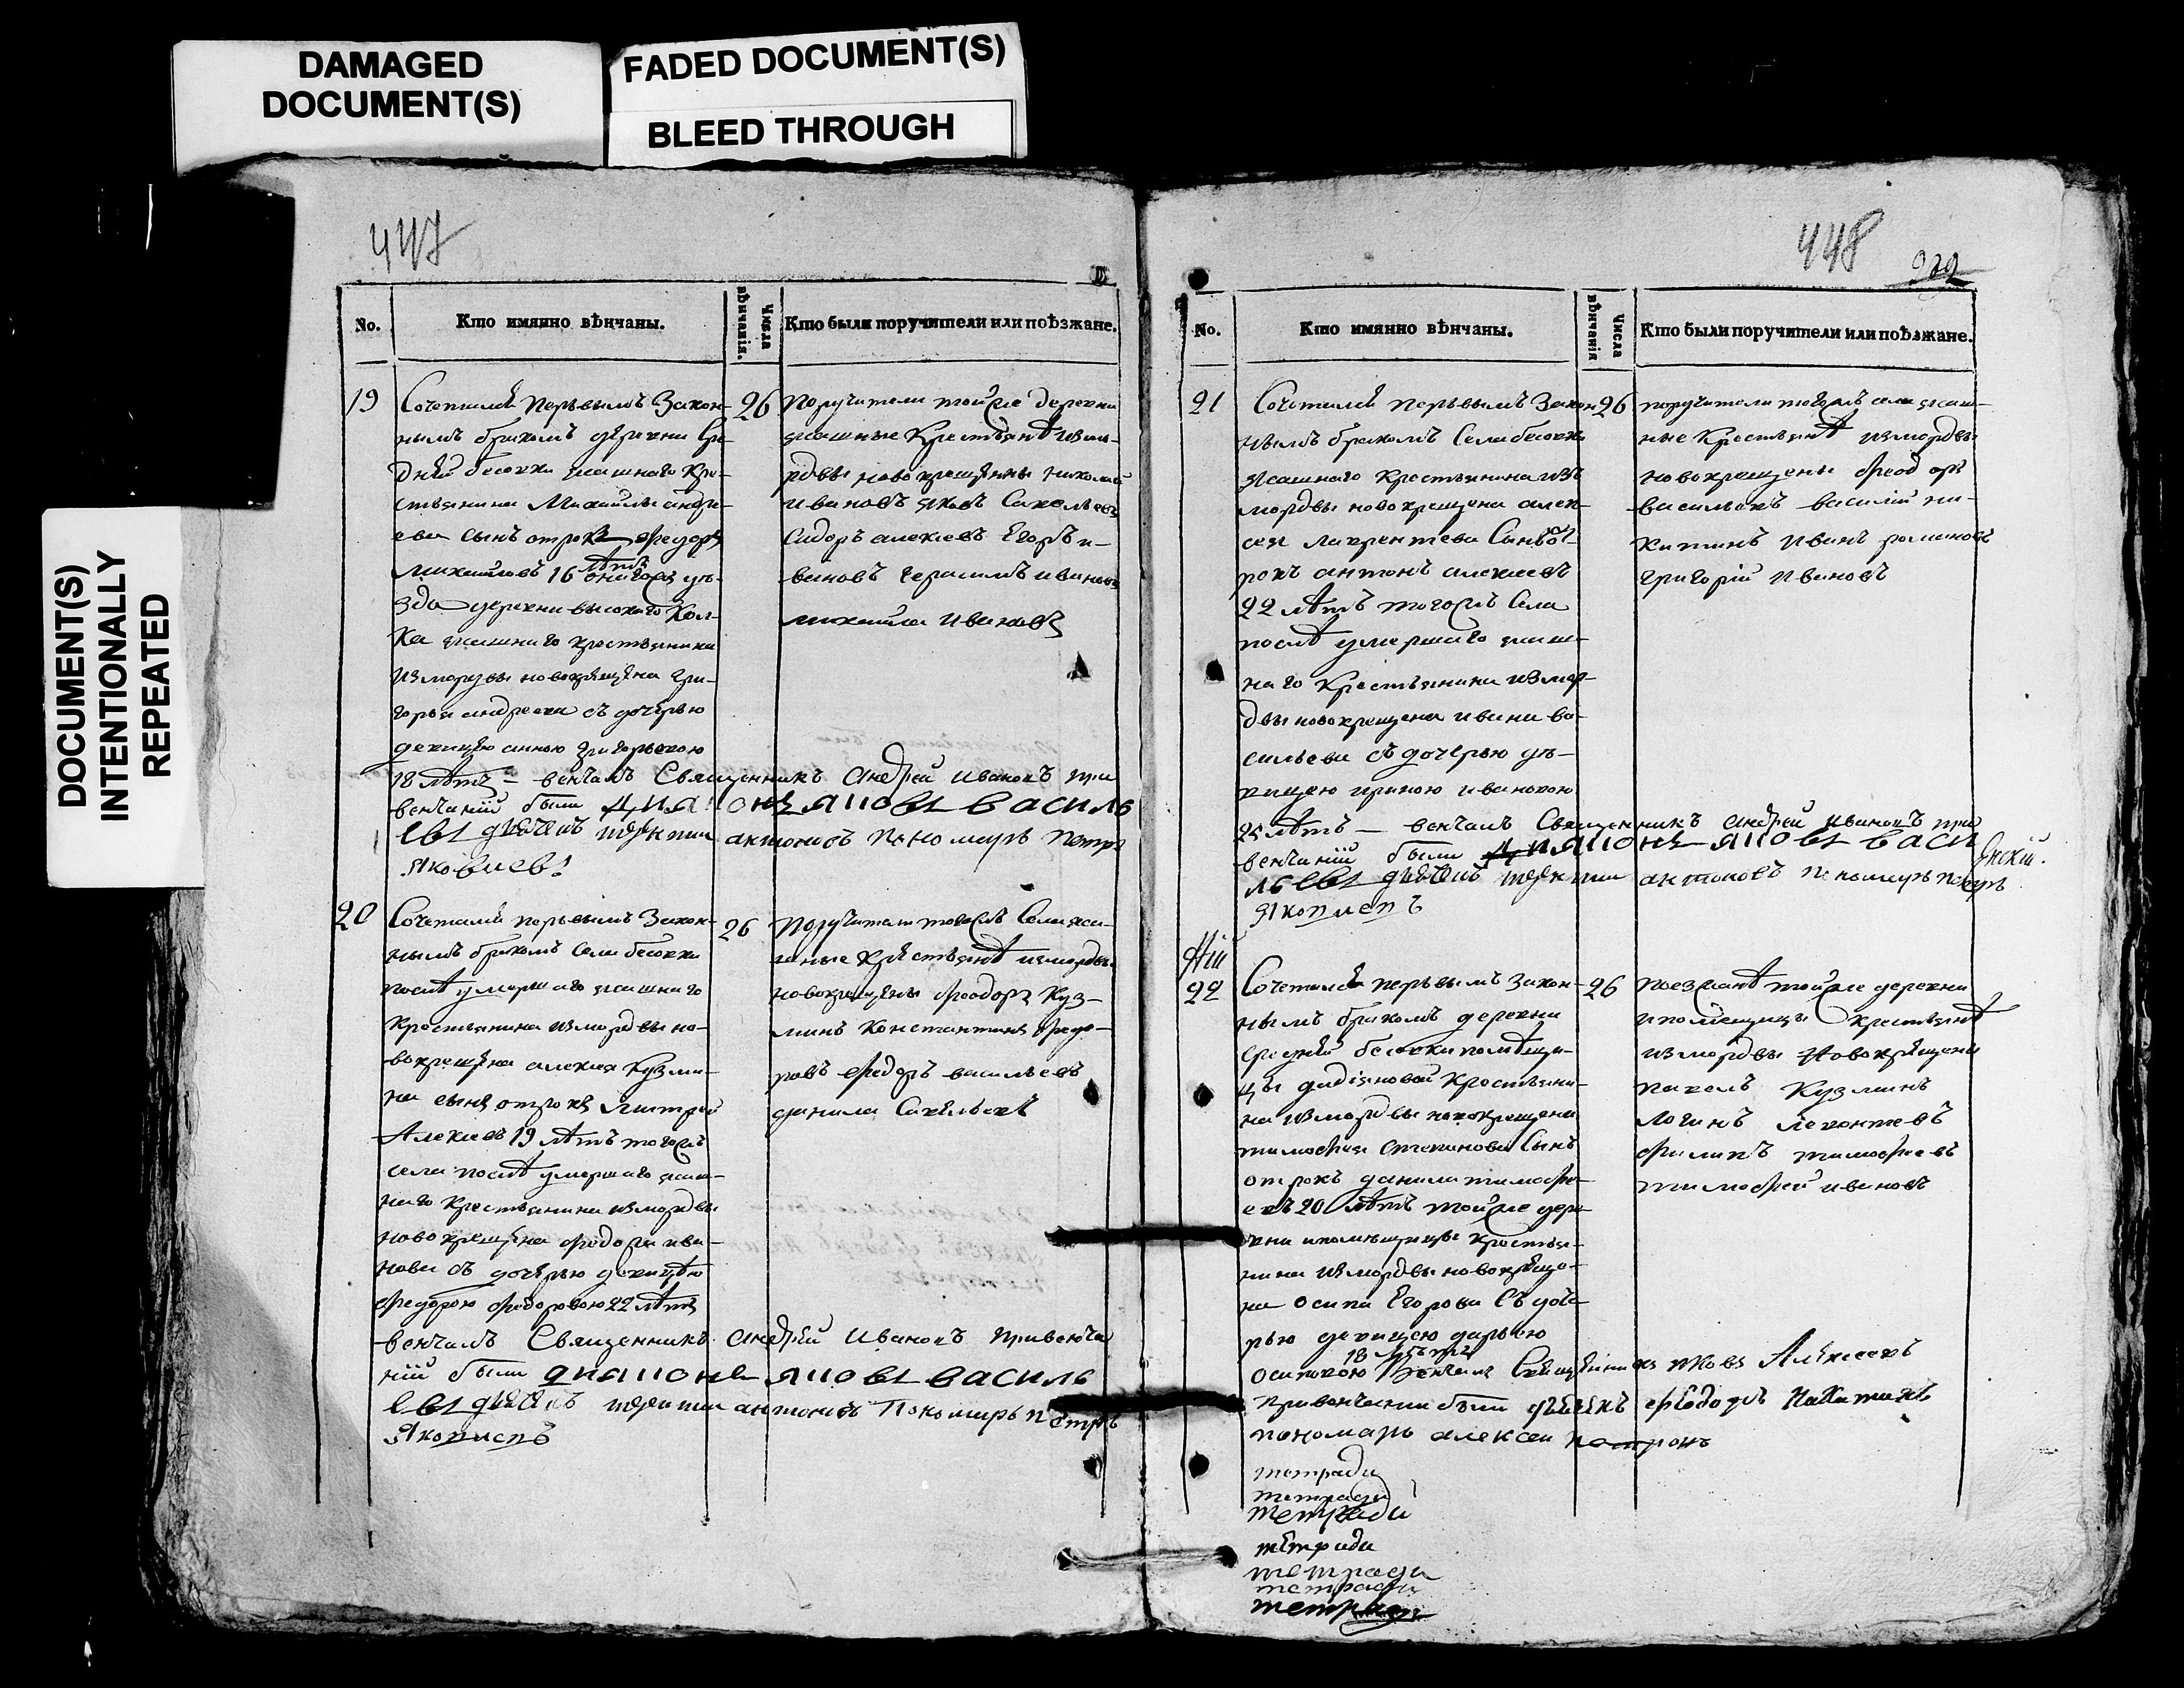 DAMAGED
DOCUMENT(S)
FADED DOCUMENT(S)
BLEED THROUGH
DOCUMENT(S)
INTENTIONALLY
REPEATED
447
No.
Кто имянно вѣнчаны.
Числа вѣнчанія.
Кто были поручители или поѣзжане.
19
Сочетался первымъ закон-
нымъ бракомъ деревни Сре-
дней бесовки ясашнаго кре-
стьянина Михайлы андре-
ева сынъ отрокъ федоръ
михайловъ 16 лѣтъ онагожъ уѣ-
зда деревни высокаго кол-
ка ясашнаго крестьянина
из мордвы новокрещена гри-
горья андреева съ дочерью
девицею анною григорьевою
18 лѣтъ – венчалъ Священникъ андрей ивановъ при
венчаніи были дияконъ яковъ василь
евъ дьячекъ терентий антоновъ пономарь петръ
яковлевъ
26
поручители тойже деревни
ясашные крестьянѣ из мо-
рдвы новокрещены николай
ивановъ яковъ савельевъ
Сидоръ алексеевъ Егоръ и-
вановъ герасимъ ивановъ
михайла ивановъ
20
Сочетался первымъ закон-
нымъ бракомъ села бесовки
послѣ умершаго ясашнаго
крестьянина из мордвы но-
вокрещена алексея кузми-
на сынъ отрокъ дмитрей
алексеевъ 19 лѣтъ тогожъ
села послѣ умершаго ясаш-
наго крестьянина из мордвы
новокрещена федора ива-
нова съ дочерью девицею
федорою федоровою 22 лѣтъ
венчалъ Священникъ андрей ивановъ при венча
ніи были дияконъ яковъ василь
евъ дьячекъ терентий антоновъ пономарь петръ
яковлевъ
26
поручители тогожъ села яса-
шные крестьянѣ из мордвы
новокрещены феодоръ куз-
минъ константинъ федо-
ровъ федоръ васильевъ
данила Савельевъ
448
No.
Кто имянно вѣнчаны.
Числа вѣнчанія
Кто были поручители или поѣзжане.
21
Сочетался первымъ закон
нымъ бракомъ села бесовки
ясашнаго крестьянина изъ
мордвы новокрещена алек-
сея лаврентева сынъ от-
рокъ антонъ алексеевъ
22 лѣтъ тогожъ села
послѣ умершаго ясаш-
наго крестьянина из мор-
двы новокрещена ивана ва-
сильева съ дочерью де-
вицею ириною ивановою
25 лѣтъ – венчалъ Священникъ андрей ивановъ при
венчаніи были дияконъ яковъ васи
льевъ дьячекъ терентий антоновъ пономарь петръ
яковлевъ
26
поручители тогожъ села ясаш-
ные крестьянѣ из мордвы
новокрещены феодоръ
васильевъ василій ни-
китинъ иванъ романовъ
григорій ивановъ
22
Сочетался первымъ закон-
нымъ бракомъ деревни
средней бесовки помѣщи-
цы крестьяни-
на из мордвы новокрещена
тимофея степанова сынъ
отрокъ данила тимофе-
евъ 20 лѣтъ тойже дере-
вни ипомѣщицы крестья-
нина из мордвы новокреще-
на осипа Егорова съ доче
рью девицею дарьею
осиповою 18 лѣтъ венчалъ Священникъ яковъ Алексеевъ
при венчании были дьячекъ феодоръ никитинъ
пономарь алексеи петровъ
26
поезжанѣ тойже деревни
ипомещицы крестьянѣ
из мордвы новокрещены
павелъ кузминъ
логинъ леонтевъ
филипъ тимофеевъ
тимофей ивановъ
тетради
тетради
тетради
тетради
тетради
тетради
тетради